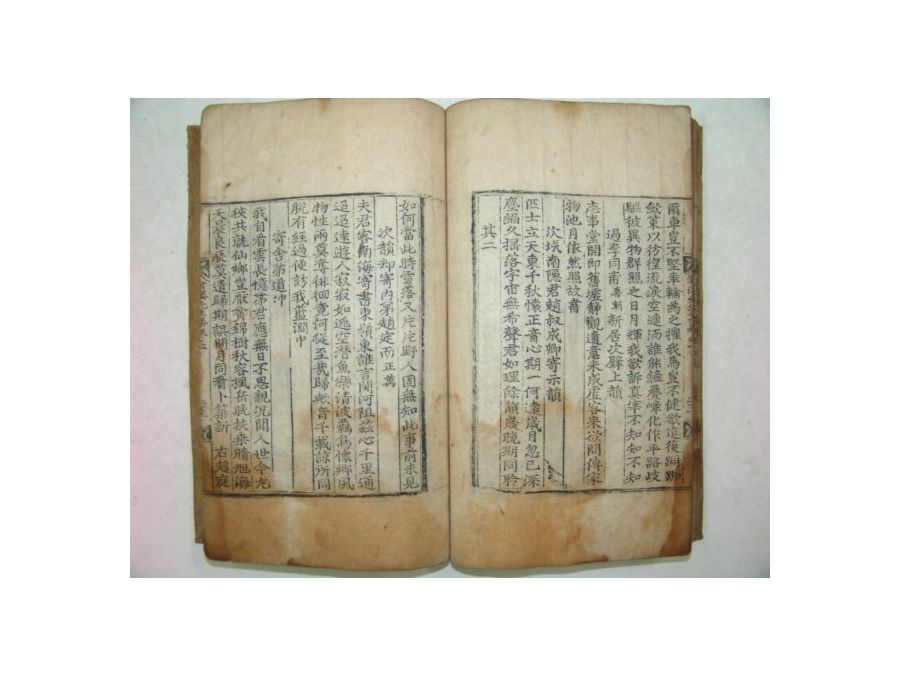 爾車豈不堅車輪為之摧我馬豈不健欲進復
歛策以彷徨流淚空連洏誰能鏟疊嶂化作平路歧
驅彼異物群照之日月輝我欲訴真宰不知知不知
過李同甫喜新新居次壁上韻
志事堂開即舊墟靜觀遺意未成虛客來欲問傳家
物池月依然照故書
次城南隱君趙叔成卿寄示韻
匹士立天東千秋懷正音心期一何遠歲月忽已深
塵編久撰落宇宙無希聲君如理餘韻歲晚期同
其二
如何當此時雪落又片片野人園無知此事前未見
次韻却寄內弟趙定而正萬
夫君客南海寄書東嶺東誰言關河阻茲心千里通
迢迢遠遊人寂寂如逃空潛魚樂清波羈鳥懷鄉風
物性兩莫奪徘徊竟何從至哉歸歟音千載諒所同
脫有經過便訪我藍澗中
寄舍弟道冲
我自看雲長憶弟君應無日不思親況聞人世今九
狹共說仙鄉豈厭貧錦樹秋容風岳晚扶桑晴旭海
天晨良辰莫遣歸期誤明月同看卜築新